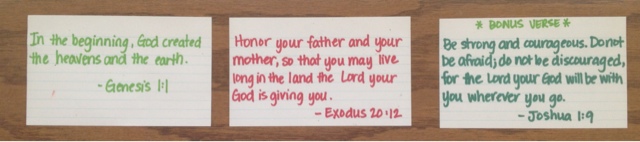 In the beginning, God created
the heavens and the earth.
- Genesis 1:1
Honor your father and your
mother, so that you may live
long in the land the Lord your
God is giving you.
- Exodus 20:12
* BONUS VERSE *
Be strong and courageous. Do not
be afraid; do not be discouraged,
for the Lord your God will be with
you wherever you go.
- Joshua 1:9